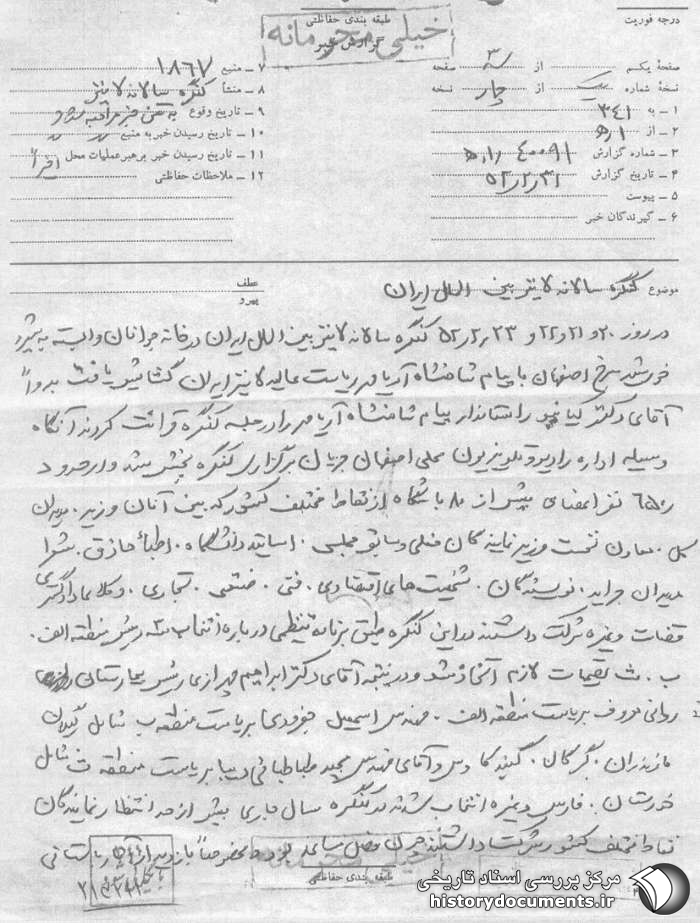 طبقه بندی حفاظتی
خیلی محرمانه
گزارش خبر
درجه فوریت
صفحهٔ یکم از ۳ صفحه
نسخهٔ شماره یک از چهار نسخه
۱ - به ۳۴۱
۲ - از ۵ﻫ۱
۳ - شماره گزارش
۴ - تاریخ گزارش ۵۲/۲/۳۱
۵ - پیوست
۶ - گیرندگان خبر
۷ - منبع ۱۸۶۷
۸ - منشأ کنگره سالانه لاینز
۹ - تاریخ وقوع به متن خبر مراجعه شود
۱۰ - تاریخ رسیدن خبر به منبع
۱۱ - تاریخ رسیدن خبر به رهبر عملیات محل
۱۲ - ملاحظات حفاظتی
موضوع کنگره سالانه لاینز بین المللی ایران
عطف
پیرو
در روز ۲۰ و ۲۱ و ۲۲ و ۵۲/۲/۲۳ کنگره سالانه لاینز بین المللی ایران در خانه جوانان وابسته به شیر و
خورشید سرخ اصفهان با پیام شاهنشاه آریامهر ریاست عالیه لاینز ایران گشایش یافت بدواً
آقای دکتر کیانپور استاندار پیام شاهنشاه آریامهر را در جلسه کنگره قرائت کردند آنگاه
وسیله اداره رادیو و تلویزیون محلی اصفهان جریان برگزاری کنگره پخش شد و از حدود
۶۵۰ نفر اعضای بیش از ۸۰ باشگاه از نقاط مختلف کشور که بین آنان وزیر، مدیران
کل، معاون نخست وزیر نمایندگان فعلی و سابق مجلس، اساتید دانشگاه، اطبأ حاذق، شعرا
مدیران جراید، نویسندگان، شخصیت های اقتصادی، فنی، صنعتی، تجاری، و وکلا دادگستری
قضات و غیره شرکت داشتند در این کنگره طبق برنامه تنظیمی درباره انتخاب سه رئیس منطقه الف،
ب، ث تصمیمات لازم اتخاذ شد و در نتیجه آقای دکتر ابراهیم چهرازی رئیس بیمارستان
روانی معروف بریاست منطقه الف، مهندس اسمعیل بریاست منطقه ب شامل گیلان
مازندران، گرگان، گنبد کاوس و آقای مهندس مجید طباطبائی دیبا بریاست منطقه ث شامل
خوزستان، فارس و غیره انتخاب شدند در کنگره سال جاری بیش از حد انتظار نمایندگان
نقاط مختلف کشور شرکت داشتند
خیلی محرمانه
طبقه بندی حفاظتی
مرکز بررسی اسناد تاریخی
historydocuments.ir